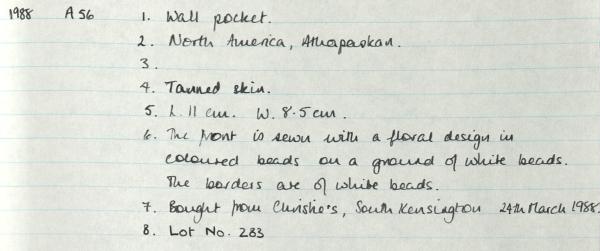 1988 A 56 1. Wall pocket.
2. North America, Athapaskan.
3.
4. Tanned skin.
5. L. 11 cm. W. 8.5 cm.
6. The front is sewn with a floral design in
coloured beads on a ground of white beads.
The borders are of white beads.
7. Bought from Christie's, South Kensington 24th March 1988.
8. Lot No. 283